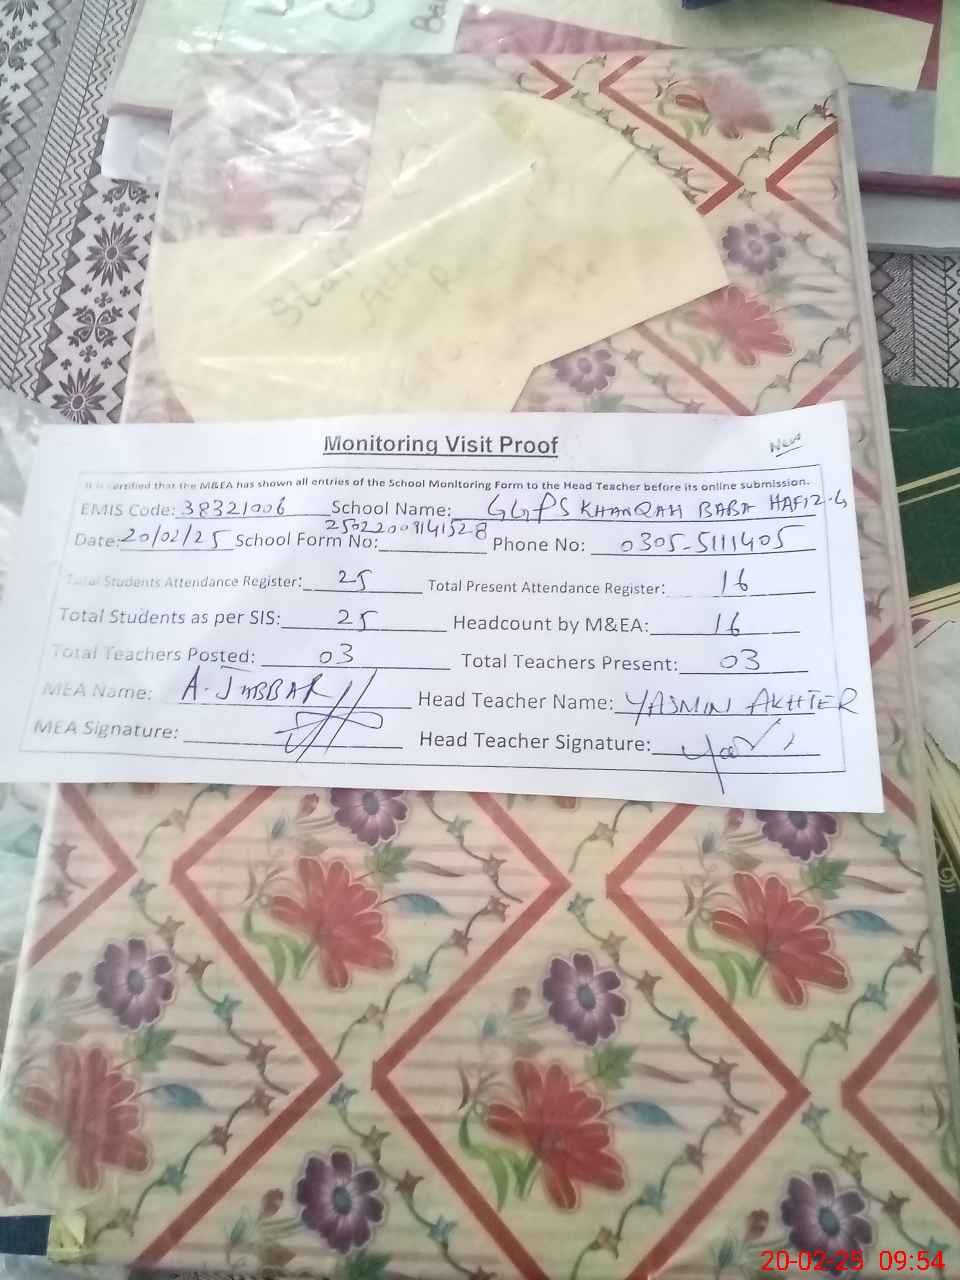 Be
Staff
Monitoring Visit Proof
New
It is certified that the M&EA has shown all entries of the School Monitoring Form to the Head Teacher before its online submission.
EMIS Code: 38321006 School Name: GGPS KHANQAH BABA HAFIZ-G
Date: 20/02/25 School Form No: 25022009141528 Phone No: 0305-5111405
Total Students Attendance Register: 25 Total Present Attendance Register: 16
Total Students as per SIS: 25 Headcount by M&EA: 16
Total Teachers Posted: 03 Total Teachers Present: 03
MEA Name: A. JABBAR Head Teacher Name: YASMIN AKHTER
MEA Signature: Head Teacher Signature:
20-02-25 09:54